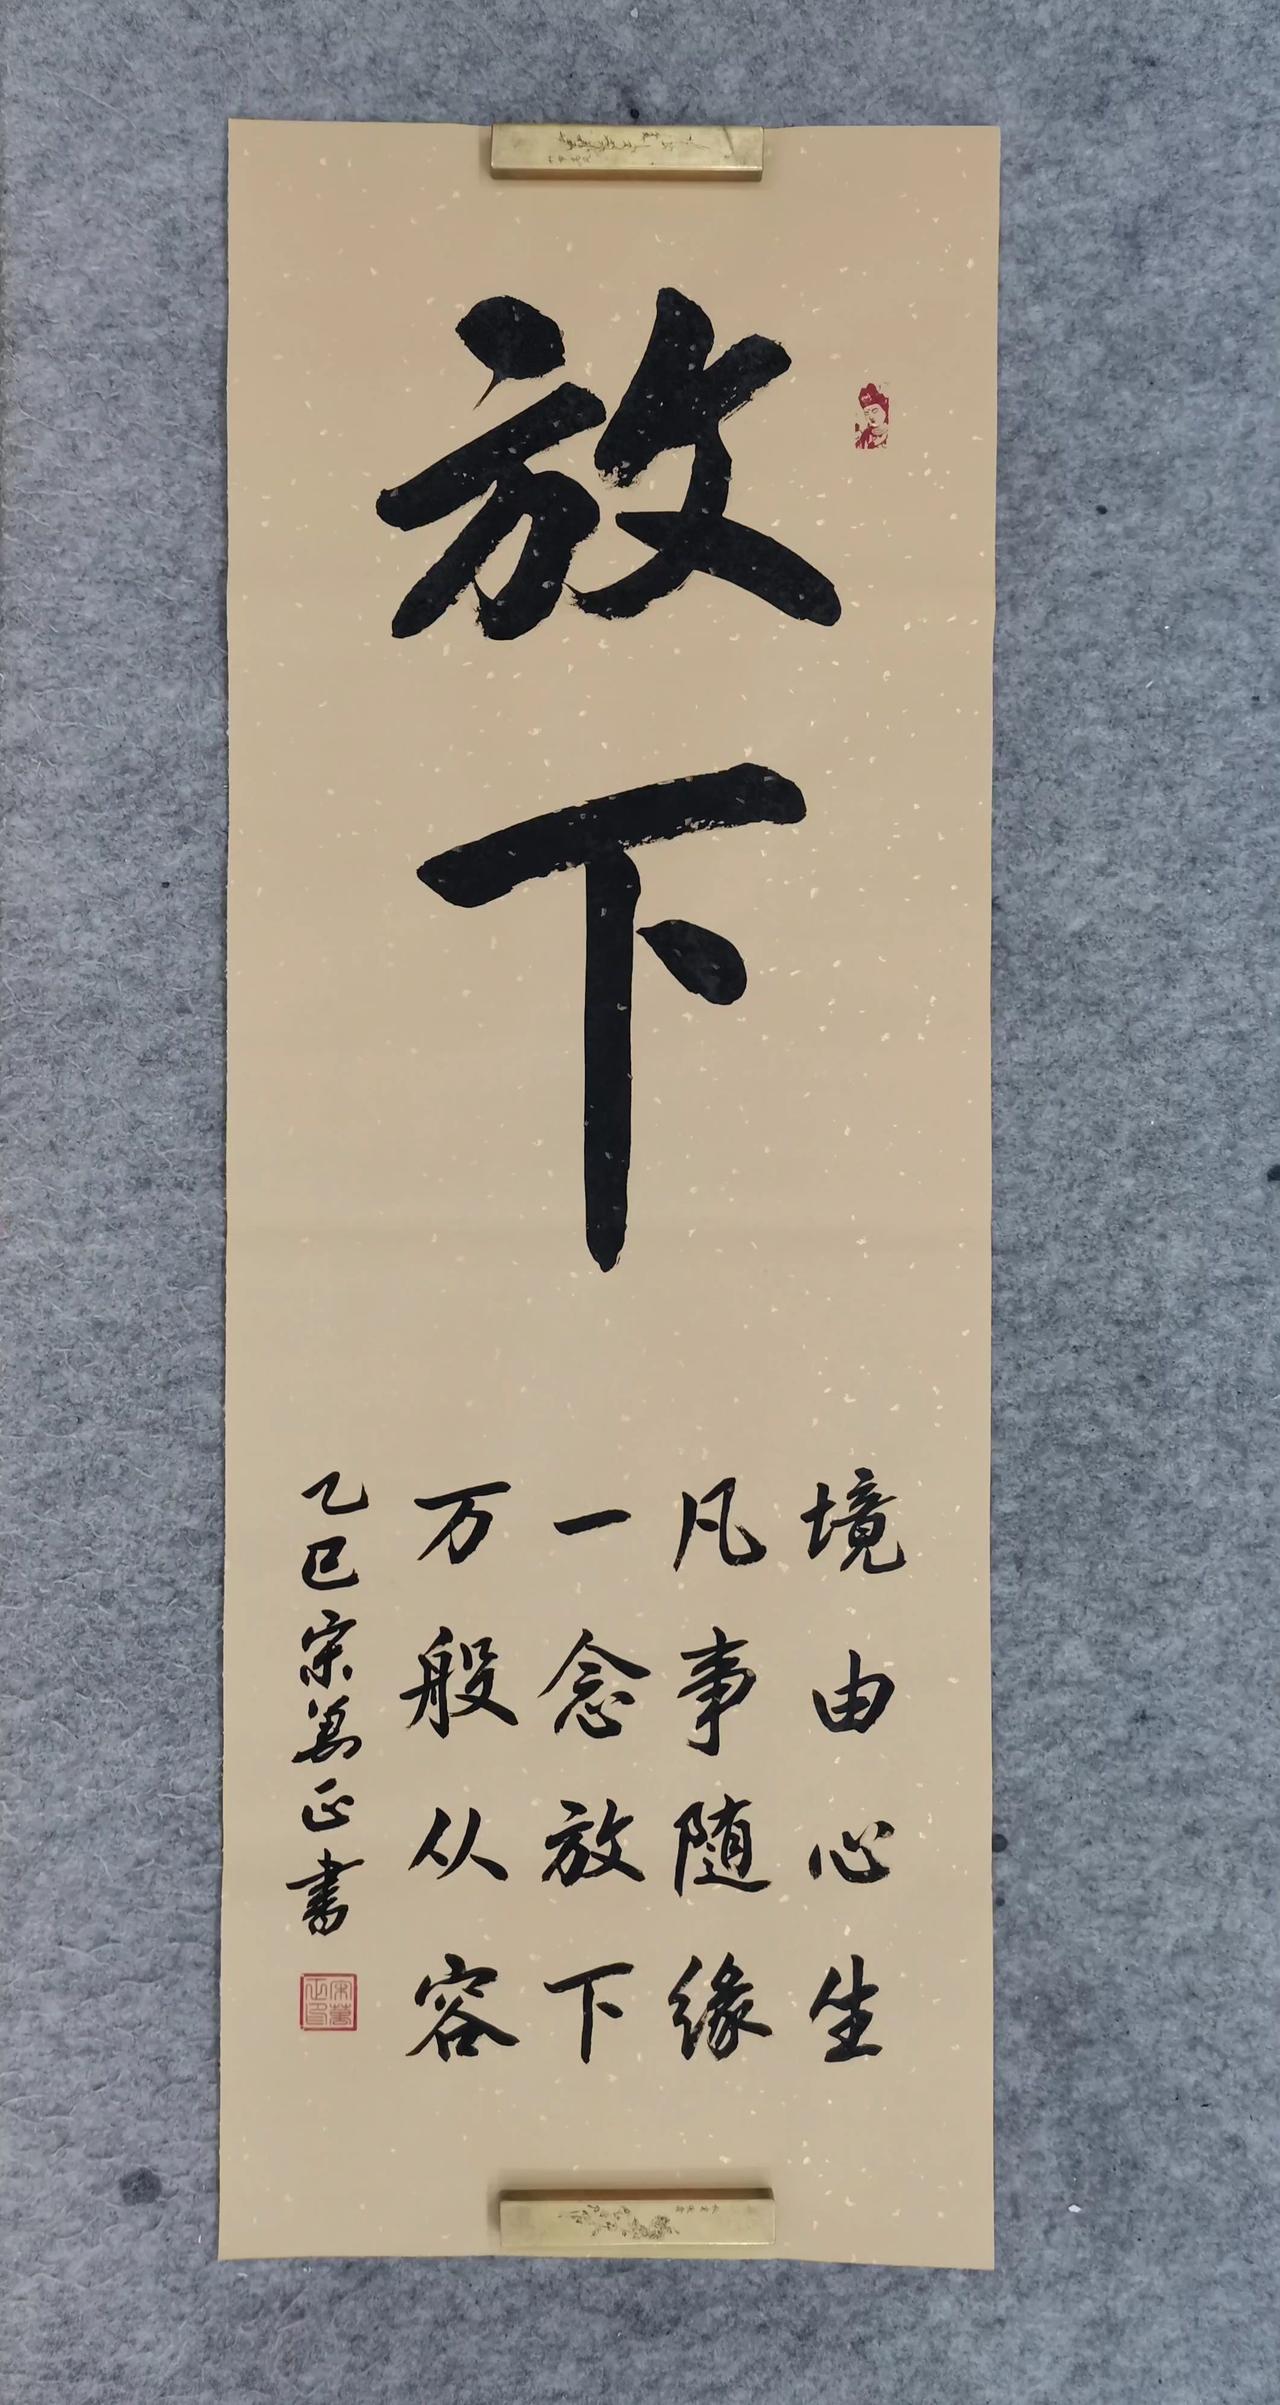 放下
境由心生
凡事随缘
一念放下
万般从容
乙巳宋万正书